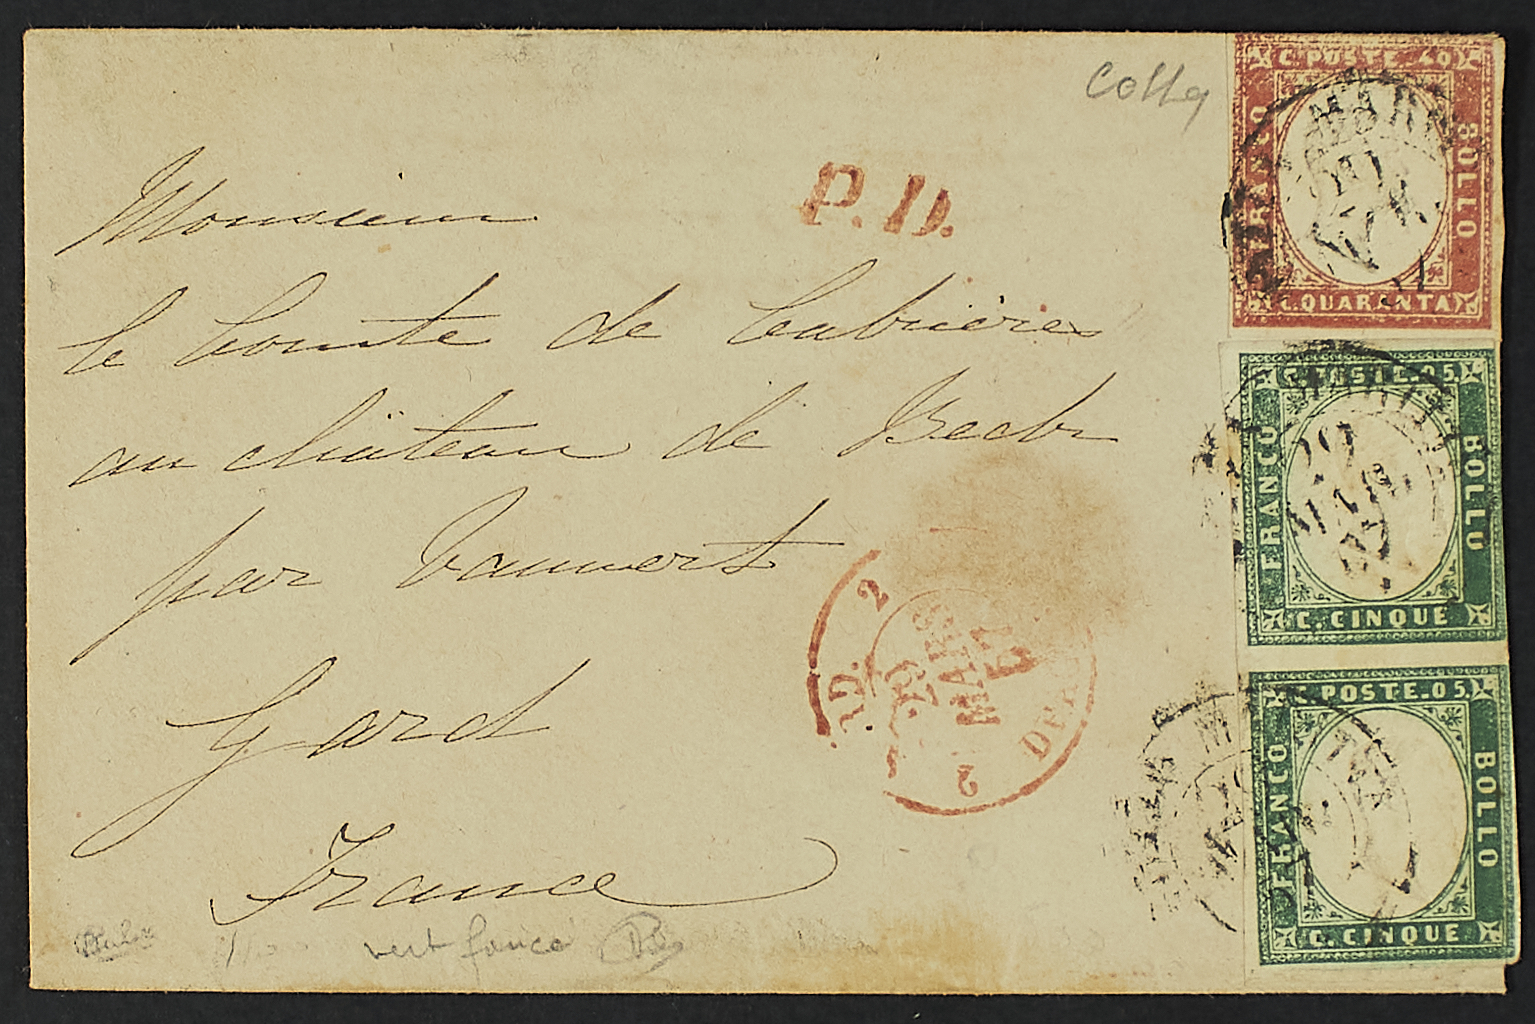 Colla
P.D.
Monsieur
le Comte de Cabrières
au château de
par Vauvert
Gard
France
vert foncé
2
29
MARS
57
2
C. POSTE 40
FRANCO
BOLLO
C. QUARANTA
C. POSTE. 05
FRANCO
BOLLO
C. CINQUE
29
MAR
C. POSTE. 05
FRANCO
BOLLO
C. CINQUE